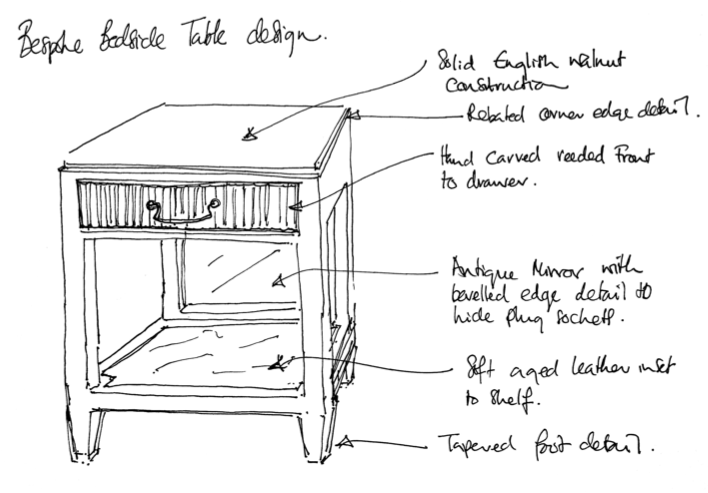 Bespoke Bedside Table design.
Solid English walnut
construction
Rebated corner edge detail.
Hand carved reeded front
to drawer.
Antique Mirror with
bevelled edge detail to
hide plug sockets.
Soft aged leather inset
to shelf.
Tapered foot detail.